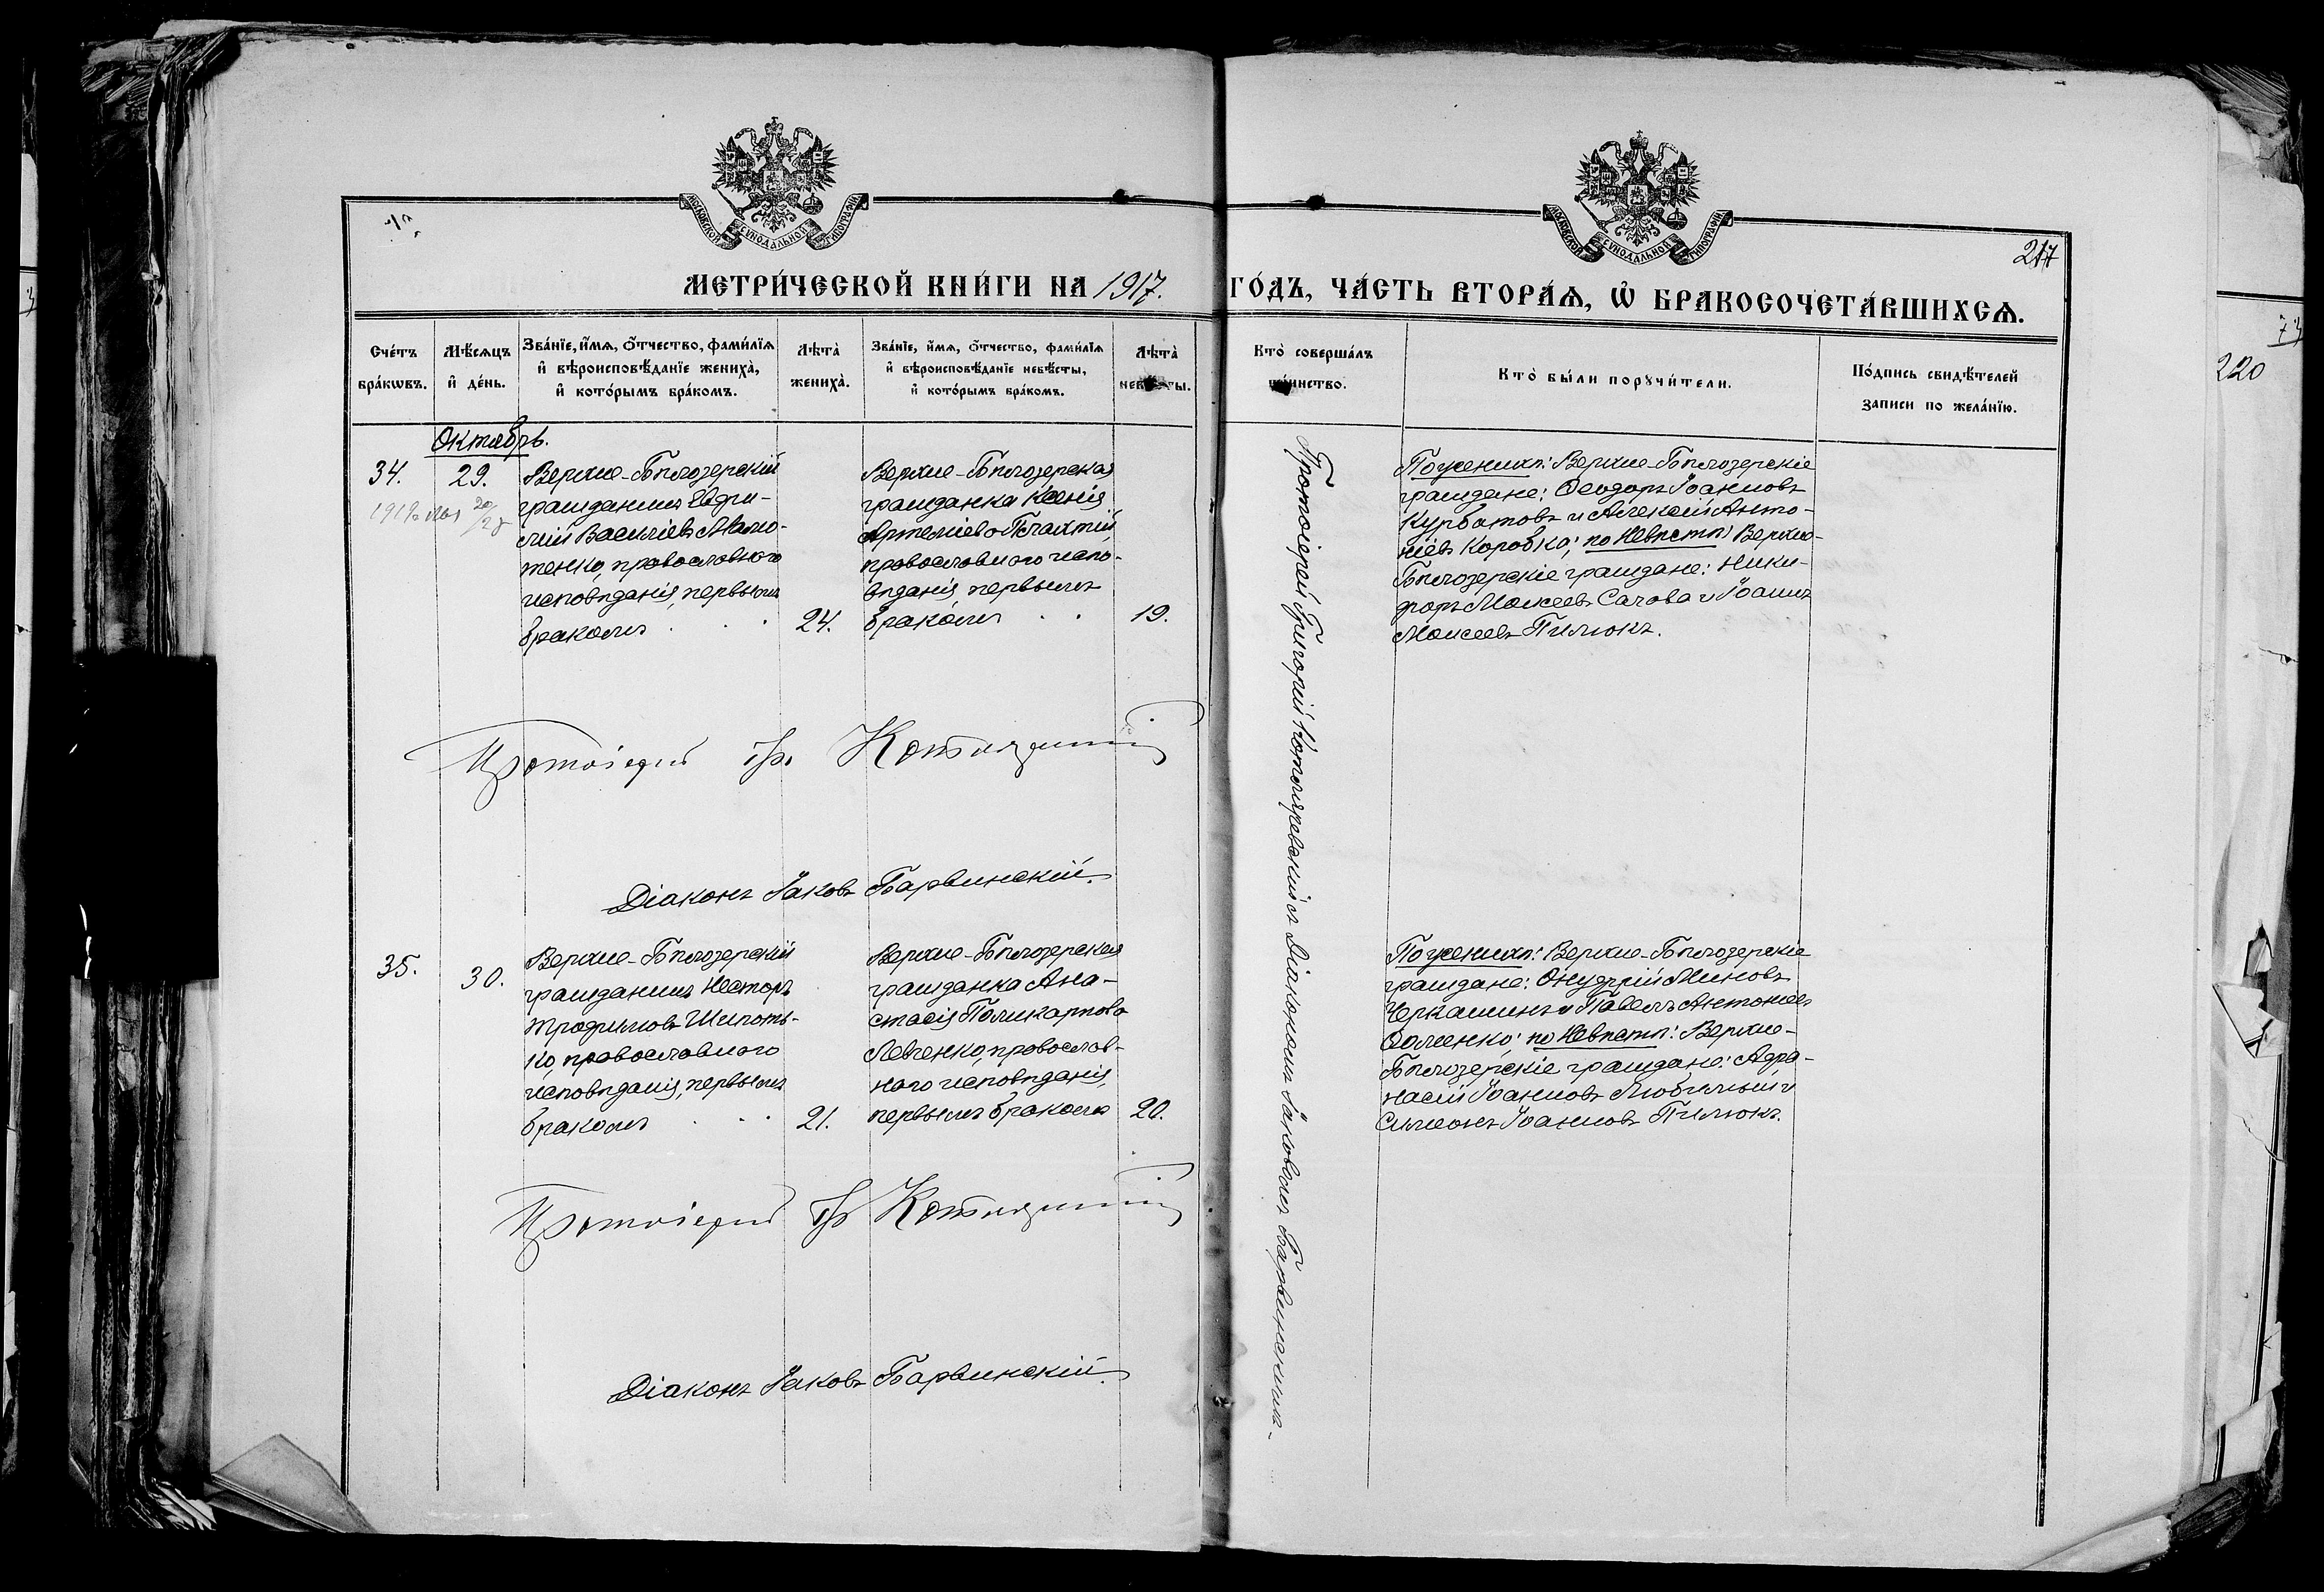 МОСКОВСКОЙ СѴНОДАЛЬНОЙ ТИПОГРАФІИ
МОСКОВСКОЙ СѴНОДАЛЬНОЙ ТИПОГРАФІИ
217
МЕТРИ́ЧЕСКОЙ КНИ́ГИ НА 1917. ГО́ДЪ, ЧА́СТЬ ВТОРА́Ѧ, Ѡ҆ БРАКОСОЧЕТА́ВШИХСѦ.
Сче́тъ
бра́кѡвъ.
Мѣ́сѧцъ
и҆ де́нь.
Зва́нїе, и҆́мѧ, ѻ҆́тчество, фами́лїѧ
и҆ вѣроисповѣ́данїе жениха̀,
и҆ кото́рымъ бра́комъ.
Лѣта̀
жениха̀.
Зва́нїе, и҆́мѧ, ѻ҆́тчество, фами́лїѧ
и҆ вѣроисповѣ́данїе невѣ́сты,
и҆ кото́рымъ бра́комъ.
Лѣта̀
невѣ́сты.
Кто̀ соверша́лъ
та́инство.
Кто̀ бы́ли порꙋчи́тели.
По́дпись свидѣ́телей
записи по жела́нїю.
Октябрь.
34.
29.
Верхне-Бѣлозерскій
гражданинъ Евфи-
мій Васильевъ
тенко, православнаго
исповѣданія, первымъ
бракомъ
24.
Верхне-Бѣлозерская
гражданка Ксенія
Артеміева Плахтій,
православнаго испо-
вѣданія, первымъ
бракомъ
19.
Протоіерей Григорій Котляревскій съ Діакономъ Іаковомъ Барвинскимъ.
По женихѣ: Верхне-Бѣлозерскіе
граждане: Ѳеодоръ Іоанновъ
Курбатовъ и Алексій Анто-
ніевъ Коробко; по невѣстѣ: Верхне-
Бѣлозерскіе граждане: Ники-
форъ Моисеевъ Сачава и Іоаннъ
Моисеевъ Пилюкъ.
Протоіерей Гр. Котляревскій
Діаконъ Іаковъ Барвинскій.
35.
30.
Верхне-Бѣлозерскій
гражданинъ Несторъ
Трофимовъ Шепоть-
ко, православнаго
исповѣданія, первымъ
бракомъ
21.
Верхне-Бѣлозерская
гражданка Ана-
стасія Поликарпова
Левченко, православ-
наго исповѣданія,
первымъ бракомъ
20.
По женихѣ: Верхне-Бѣлозерскіе
граждане: Онуфрій Миновъ
Черкашинъ и Павелъ Антоніевъ
по невѣстѣ: Верхне-
Бѣлозерскіе граждане: Афа-
насій Іоанновъ Любимый и
Симеонъ Іоанновъ Пилюкъ.
Протоіерей Гр Котляревскій
Діаконъ Іаковъ Барвинскій.
220